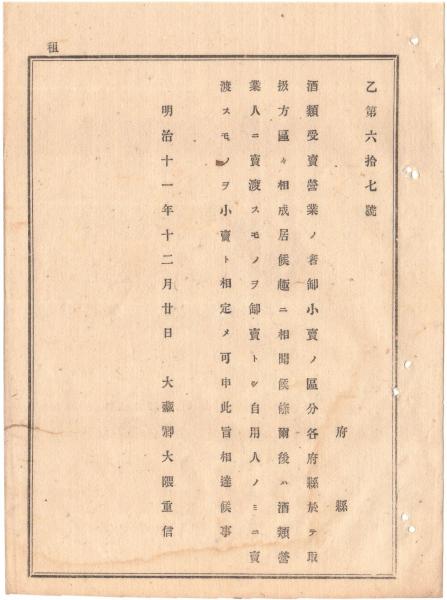 租
乙第六拾七號
府縣
酒類受賣營業ノ者卸小賣ノ區分各府縣於テ取
扱方區々相成居候趣ニ相聞候條爾後ハ酒類營
業人ニ賣渡スモノヲ卸賣トシ自用人ノミニ賣
渡スモノヲ小賣ト相定メ可申此旨相達候事
明治十一年十二月廿日 大藏卿大隈重信